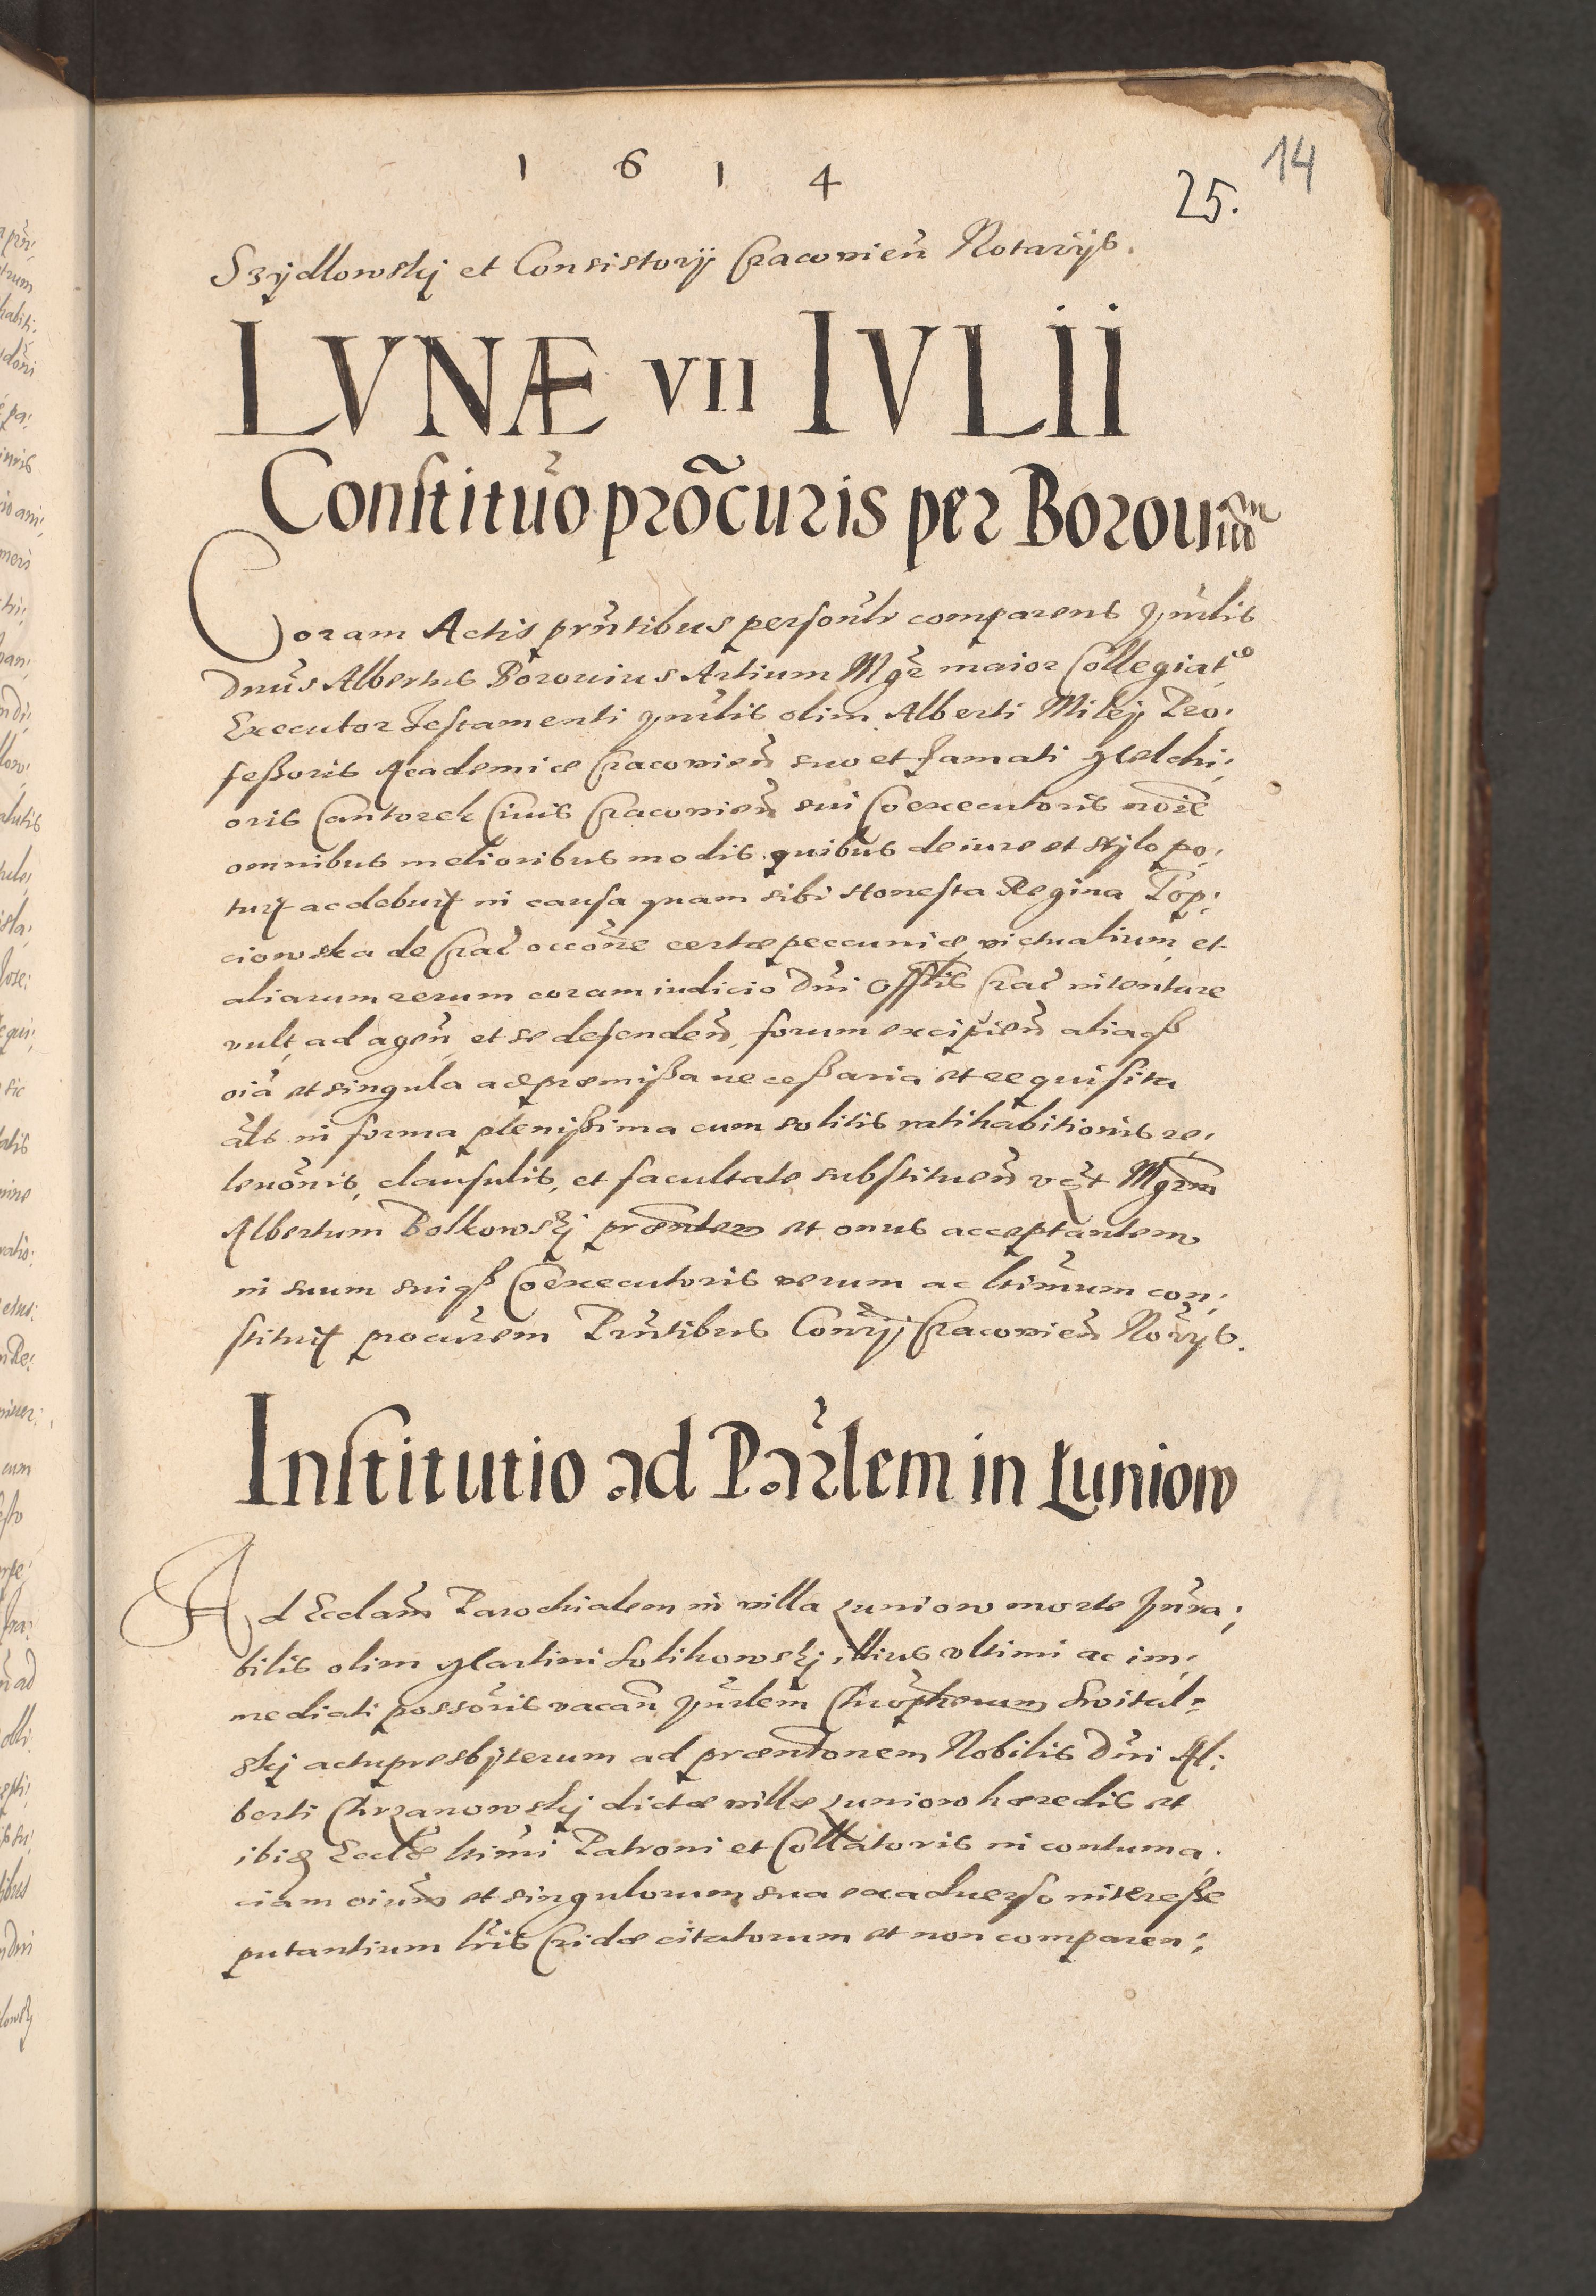 1 6 1 4
14
25.
Szÿdlowskj et Consistorÿ Cracovien̄ Notarÿs.
LVNÆ VII IVLII
Constituo procuris per Borouium
Coram Actis prn̄tibus person̄lr comparens Vn̄rlis
Dn̄us Albertus Borouius Artium Mgr̄ maior Collegiat9
Executor Testamenti Vn̄rlis olim Alberti Milej Pro:
feßoris Academiæ Cracovien̄ suo et famati Melchi:
oris Cantorek Ciuis Cracovien̄ sui Coexecutoris noīe
omnibus melioribus modis quibus de iure et stylo po:
tuit ac debuit in causa quam sibi Honesta Regina Pop:
ciowska de Crac̄ occōne certæ peccuniæ victualium et
aliarum rerum coram iudicio Dn̄i Offlis Crac̄ intentare
vult, ad agen̄ et se defenden̄, forum excipien̄ aliaqß
oīa et singula ad præmißa neceßaria et requisita
āls in forma plenißima cum solitis ratihabitionis re:
leuōnis, clausulis, et facultate substituen̄ vc̄t Mgrm̄
Albertum Bolkowskj præntem et onus acceptantem
in suum suiqß Coexecutoris verum ac ltimum con:
stituit procurem Prn̄tibus Conrÿ Cracovien̄ Norÿs.
Institutio ad Par̄lem in Luniow
Ad Ecclam̄ Parochialem in villa Luniow morte Vn̄ra:
bilis olim Martini Solikowskj illius vltimi ac im:
mediati possōris vacan̄ Vn̄rlem Chrōpherum Swital=
skj actu presbÿterum ad præntōnem Nobilis Dn̄i Al:
berti Chrzanowskj dictæ villæ Luniow hæredis et
ibiq Ecclæ ltimi Patroni et Collatoris in contuma:
ciam oium̄ et singulorum sua exaduerso intereße
putantium lrīs Cridæ citatorum et non comparen: